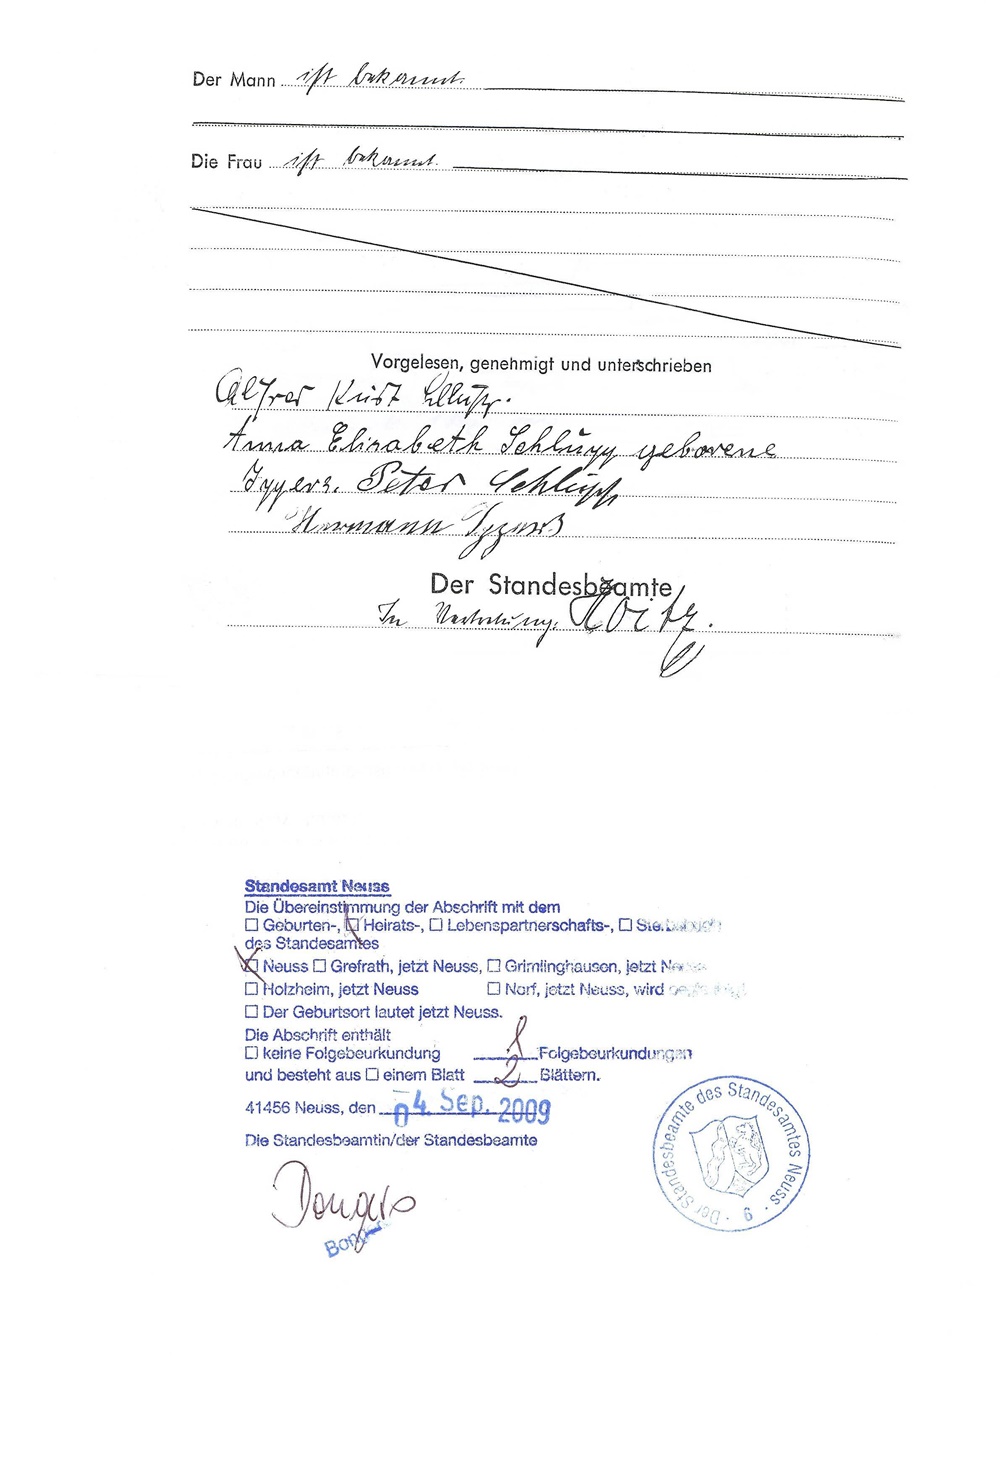 Der Mann ist bekannt.
Die Frau ist bekannt.
Vorgelesen, genehmigt und unterschrieben
Alfred Kurt
Anna Elisabeth Schlupp geborene
Peter Schlupp
Hermann
Der Standesbeamte
In Vertretung.
Standesamt Neuss
Die Übereinstimmung der Abschrift mit dem
☐ Geburten-, ☐ Heirats-, ☐ Lebenspartnerschafts-, ☐
des Standesamtes
☐ Neuss ☐ Grefrath, jetzt Neuss, ☐ Grimlinghausen, jetzt Neuss
☐ Holzheim, jetzt Neuss ☐ Norf, jetzt Neuss, wird
☐ Der Geburtsort lautet jetzt Neuss.
Die Abschrift enthält
☐ keine Folgebeurkundung 1 Folgebeurkundungen
und besteht aus ☐ einem Blatt 2 Blättern.
41456 Neuss, den 04. Sep. 2009
Die Standesbeamtin/der Standesbeamte
Der Standesbeamte des Standesamtes Neuss · 6 ·